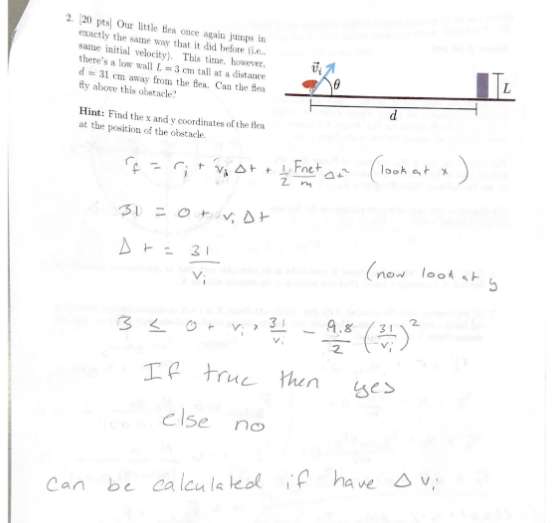 2. [20 pts] Our little flea once again jumps in
exactly the same way that it did before (i.e.,
same initial velocity). This time, however,
there's a low wall L = 3 cm tall at a distance
d = 31 cm away from the flea. Can the flea
fly above this obstacle?
v⃗ᵢ
θ
L
d
Hint: Find the x and y coordinates of the flea
at the position of the obstacle.
r_f = r_i + v_i Δt + 1/2 Fnet/m Δt² (look at x)
31 = 0 + v_i Δt
Δt = 31/v_i
(now look at y
3 ≤ 0 + v_i · 31/v_i - 9.8/2 (31/v_i)²
If true then yes
else no
can be calculated if have Δ v_i